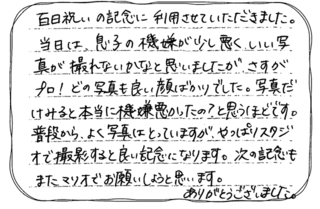 百日祝いの記念に利用させていただきました。
当日は、息子の機嫌が少し悪くいい写
真が撮れないかなと思いましたが さすが
プロ！どの写真も良い顔ばかりでした。写真だ
けみると本当に機嫌悪かったの？と思うほどです。
普段から、よく写真はとっていますが、やっぱりスタジ
オで撮影すると良い記念になります。次の記念も
またマリオでお願いしようと思います。
ありがとうございました。